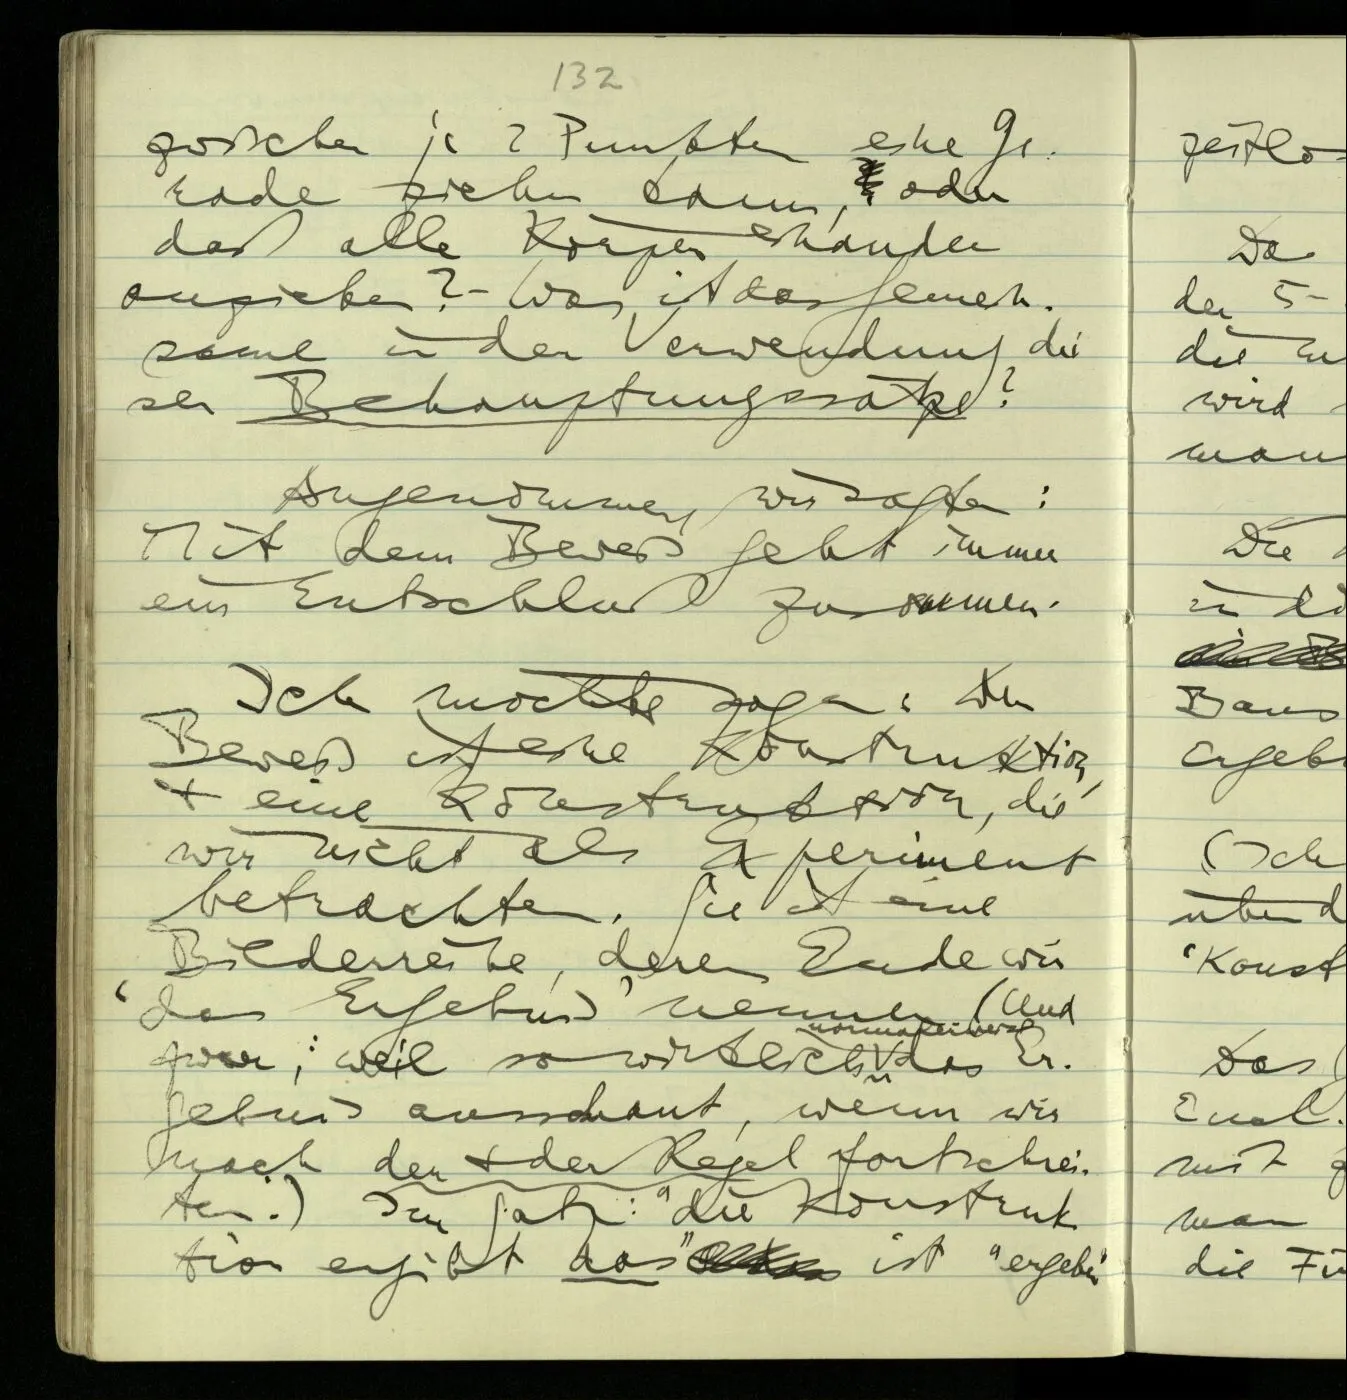 132
zwischen je 2 Punkten eine Ge-
rade ziehen kann, oder
daß alle Körper einander
anziehen? – Was ist das Gemein-
same in der Verwendung die
ser Behauptungssätze?
Angenommen, wir sagten:
Mit dem Beweis geht immer
ein Entschluß zusammen.
Ich möchte sagen: Der
Beweis ist eine Konstruktion,
+ eine Konstruktion, die
wir nicht als Experiment
betrachten. Sie ist eine
Bilderreihe, deren Ende wir
‘das Ergebnis’ nennen (Und
zwar; weil so wirklich normalerweise das Er-
gebnis ausschaut, wenn wir
nach der + der Regel fortschrei-
ten.) Im Satz: “die Konstruk
tion ergibt das” ist “ergeben”
zeitlo-
Da
der 5-
die
wird
man
Die
in
Baus
ergeb
(Ich
über d
‘Konst
Das
Encl.
mit
man
die Fü